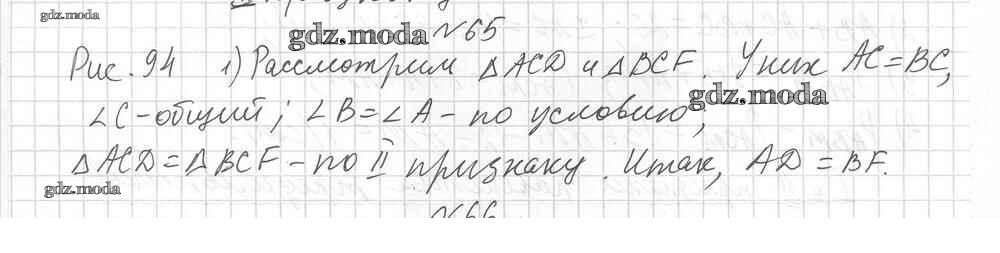 gdz.moda
gdz.moda №65
Рис. 94 1) Рассмотрим △ACD и △BCF. У них AC=BC,
gdz.moda
∠C-общий; ∠B=∠A - по условию;
△ACD=△BCF - по II признаку. Итак, AD = BF.
gdz.moda
№66